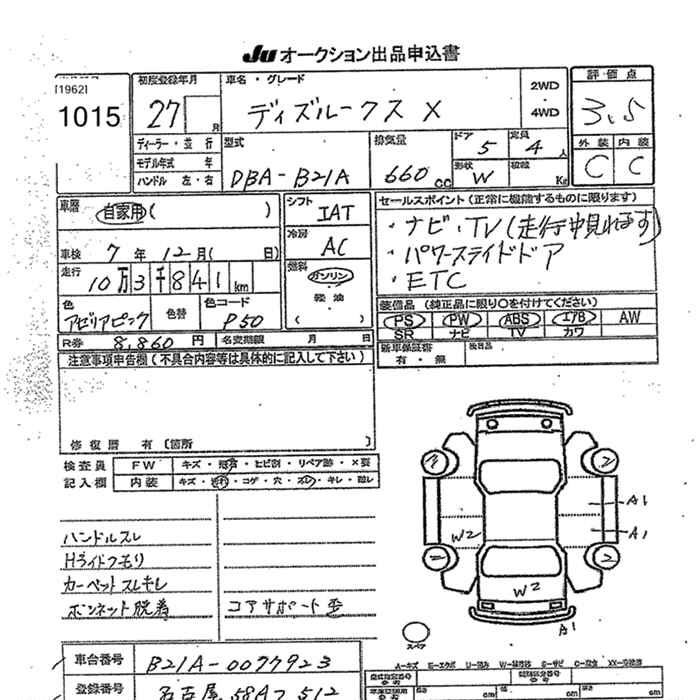 Ju オークション出品申込書
[1962]
1015
初度登録年月 27 月
車名・グレード ディズルークス X
2WD
・
4WD
評価点
3.5
外装 内装
C C
ディーラー・並行
モデル年式 年
ハンドル 左・右
型式 DBA-B21A
排気量 660 cc
ドア 5
定員 4 人
形状 W
積載 Kg
車歴 自家用( )
シフト IAT
セールスポイント(正常に機能するものに限ります)
・ナビ・TV(走行中見れます)
・パワースライドドア
・ETC
車検 7年 12月( 日)
冷房 AC
走行 10万3千841km
燃料 ガソリン
軽油
( )
色 アゼリアピンク
色替
色コード P50
装備品(純正品に限り○を付けてください)
PS PW ABS エアB AW
SR ナビ TV カワ
R券 8,860円 名変期限 月 日
新車保証書
有・無
後日品
注意事項申告欄(不具合内容等は具体的に記入して下さい)
修復歴 有〔箇所 〕
検査員 FW キズ・飛石・ヒビ割・リペア跡・×要
記入欄 内装 キズ・汚れ・コゲ・穴・スレ・キレ・ルレ
ハンドルスレ
Hライトクモリ
カーペットスレキレ
ボンネット脱着 コアサポート歪
A1
A1
W2
W2
A1
2
2
2
スペア
車台番号 B21A-0077923
登録番号 名古屋 58A7 512
A-キズ E-エクボ U-凹み W-補修跡 S-サビ C-腐食 XX-交換済
cm cm cm